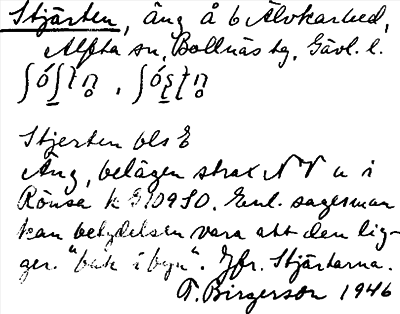 Stjärten, äng å 6 Älvkarhed,
Alfta sn, Bollnäs tg, Gävl. l.
Stjerten bls E
Äng, belägen strax NV u i
Rönsa k S109S0. Enl. sagesman
kan betydelsen vara att den lig-
ger "bak i byn". Jfr. Stjärtarna.
T. Birgerson 1946